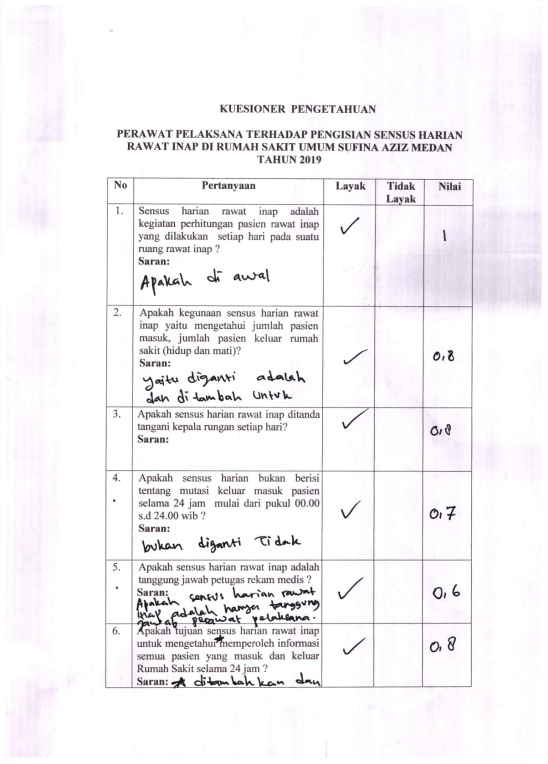 KUESIONER PENGETAHUAN
PERAWAT PELAKSANA TERHADAP PENGISIAN SENSUS HARIAN
RAWAT INAP DI RUMAH SAKIT UMUM SUFINA AZIZ MEDAN
TAHUN 2019
No Pertanyaan Layak Tidak Layak Nilai
1. Sensus harian rawat inap adalah
kegiatan perhitungan pasien rawat inap
yang dilakukan setiap hari pada suatu
ruang rawat inap ?
Saran:
Apakah di awal
✓ 1
2. Apakah kegunaan sensus harian rawat
inap yaitu mengetahui jumlah pasien
masuk, jumlah pasien keluar rumah
sakit (hidup dan mati)?
Saran:
yaitu diganti adalah
dan ditambah untuk
✓ 0,8
3. Apakah sensus harian rawat inap ditanda
tangani kepala rungan setiap hari?
Saran:
✓ 0,8
4. Apakah sensus harian bukan berisi
tentang mutasi keluar masuk pasien
selama 24 jam mulai dari pukul 00.00
s.d 24.00 wib ?
Saran:
bukan diganti Tidak
✓ 0,7
5. Apakah sensus harian rawat inap adalah
tanggung jawab petugas rekam medis ?
Saran: Apakah sensus harian rawat
inap adalah hanya tanggung
jawab perawat pelaksana.
✓ 0,6
6. Apakah tujuan sensus harian rawat inap
untuk mengetahui memperoleh informasi
semua pasien yang masuk dan keluar
Rumah Sakit selama 24 jam ?
Saran: ditambahkan dan
✓ 0,8